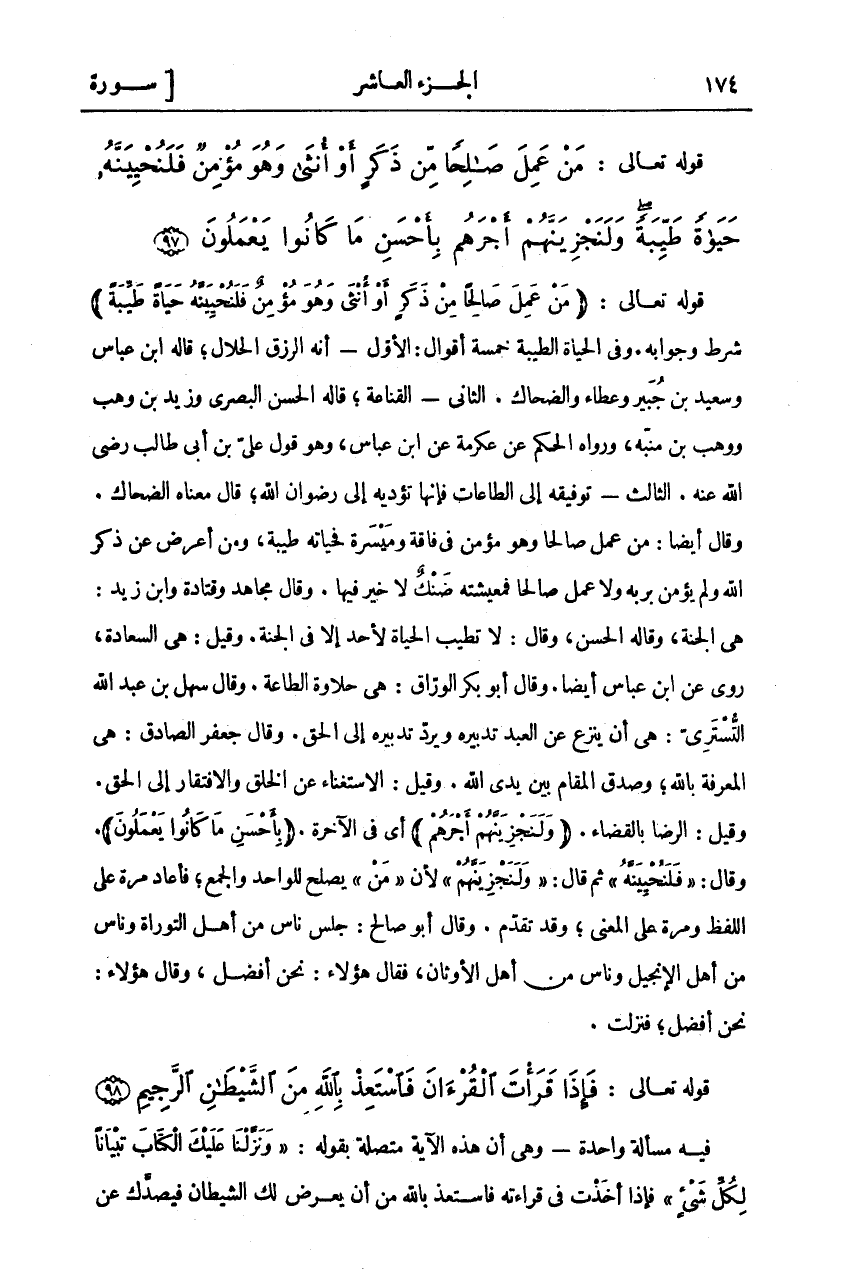 ١٧٤ الجـزء العـاشر [ سـورة
قوله تعـالى : مَنْ عَمِلَ صَـٰلِحًا مِّن ذَكَرٍ أَوْ أُنثَىٰ وَهُوَ مُؤْمِنٌ فَلَنُحْيِيَنَّهُۥ
حَيَوٰةً طَيِّبَةً ۖ وَلَنَجْزِيَنَّهُمْ أَجْرَهُم بِأَحْسَنِ مَا كَانُوا يَعْمَلُونَ ﴿٩٧﴾
قوله تعـالى : ﴿ مَنْ عَمِلَ صَالِحًا مِنْ ذَكَرٍ أَوْ أُنْثَى وَهُوَ مُؤْمِنٌ فَلَنُحْيِيَنَّهُ حَيَاةً طَيِّبَةً ﴾
شرط وجوابه. وفى الحياة الطيبة خمسة أقوال: الأوّل — أنه الرزق الحلال؛ قاله ابن عباس
وسعيد بن جُبَير وعطاء والضحاك . الثانى — القناعة ؛ قاله الحسن البصرى وزيد بن وهب
ووهب بن منبّه، ورواه الحكم عن عكرمة عن ابن عباس، وهو قول علىّ بن أبى طالب رضى
الله عنه . الثالث — توفيقه إلى الطاعات فإنها تؤديه إلى رضوان الله؛ قال معناه الضحاك .
وقال أيضا : من عمل صالحا وهو مؤمن فى فاقة ومَيْسَرة فحياته طيبة، ومن أعرض عن ذكر
الله ولم يؤمن بربه ولا عمل صالحا فمعيشته ضَنْكٌ لا خير فيها . وقال مجاهد وقتادة وابن زيد :
هى الجنة، وقاله الحسن، وقال : لا تطيب الحياة لأحد إلا فى الجنة. وقيل : هى السعادة،
روى عن ابن عباس أيضا. وقال أبو بكر الورّاق : هى حلاوة الطاعة . وقال سهل بن عبد الله
التُّسْتَرِىّ : هى أن ينزع عن العبد تدبيره ويردّ تدبيره إلى الحق. وقال جعفر الصادق : هى
المعرفة بالله، وصدق المقام بين يدى الله . وقيل : الاستغناء عن الخلق والافتقار إلى الحق.
وقيل : الرضا بالقضاء . ﴿ وَلَنَجْزِيَنَّهُمْ أَجْرَهُمْ ﴾ أى فى الآخرة . ﴿ بِأَحْسَنِ مَا كَانُوا يَعْمَلُونَ ﴾.
وقال: « فَلَنُحْيِيَنَّهُ » ثم قال: « وَلَنَجْزِيَنَّهُمْ » لأن « مَنْ » يصلح للواحد والجمع؛ فأعاد مرة على
اللفظ ومرة على المعنى ؛ وقد تقدّم . وقال أبو صالح : جلس ناس من أهـل التوراة وناس
من أهل الإنجيل وناس من أهل الأوثان، فقال هؤلاء : نحن أفضـل ، وقال هؤلاء :
نحن أفضل؛ فنزلت .
قوله تعـالى : فَإِذَا قَرَأْتَ ٱلْقُرْءَانَ فَٱسْتَعِذْ بِٱللَّهِ مِنَ ٱلشَّيْطَـٰنِ ٱلرَّجِيمِ ﴿٩٨﴾
فيـه مسألة واحدة — وهى أن هذه الآية متصلة بقوله : « وَنَزَّلْنَا عَلَيْكَ الْكِتَابَ تِبْيَانًا
لِكُلِّ شَىْءٍ » فإذا أخَذْت فى قراءته فاستعذ بالله من أن يعـرض لك الشيطان فيصدّك عن